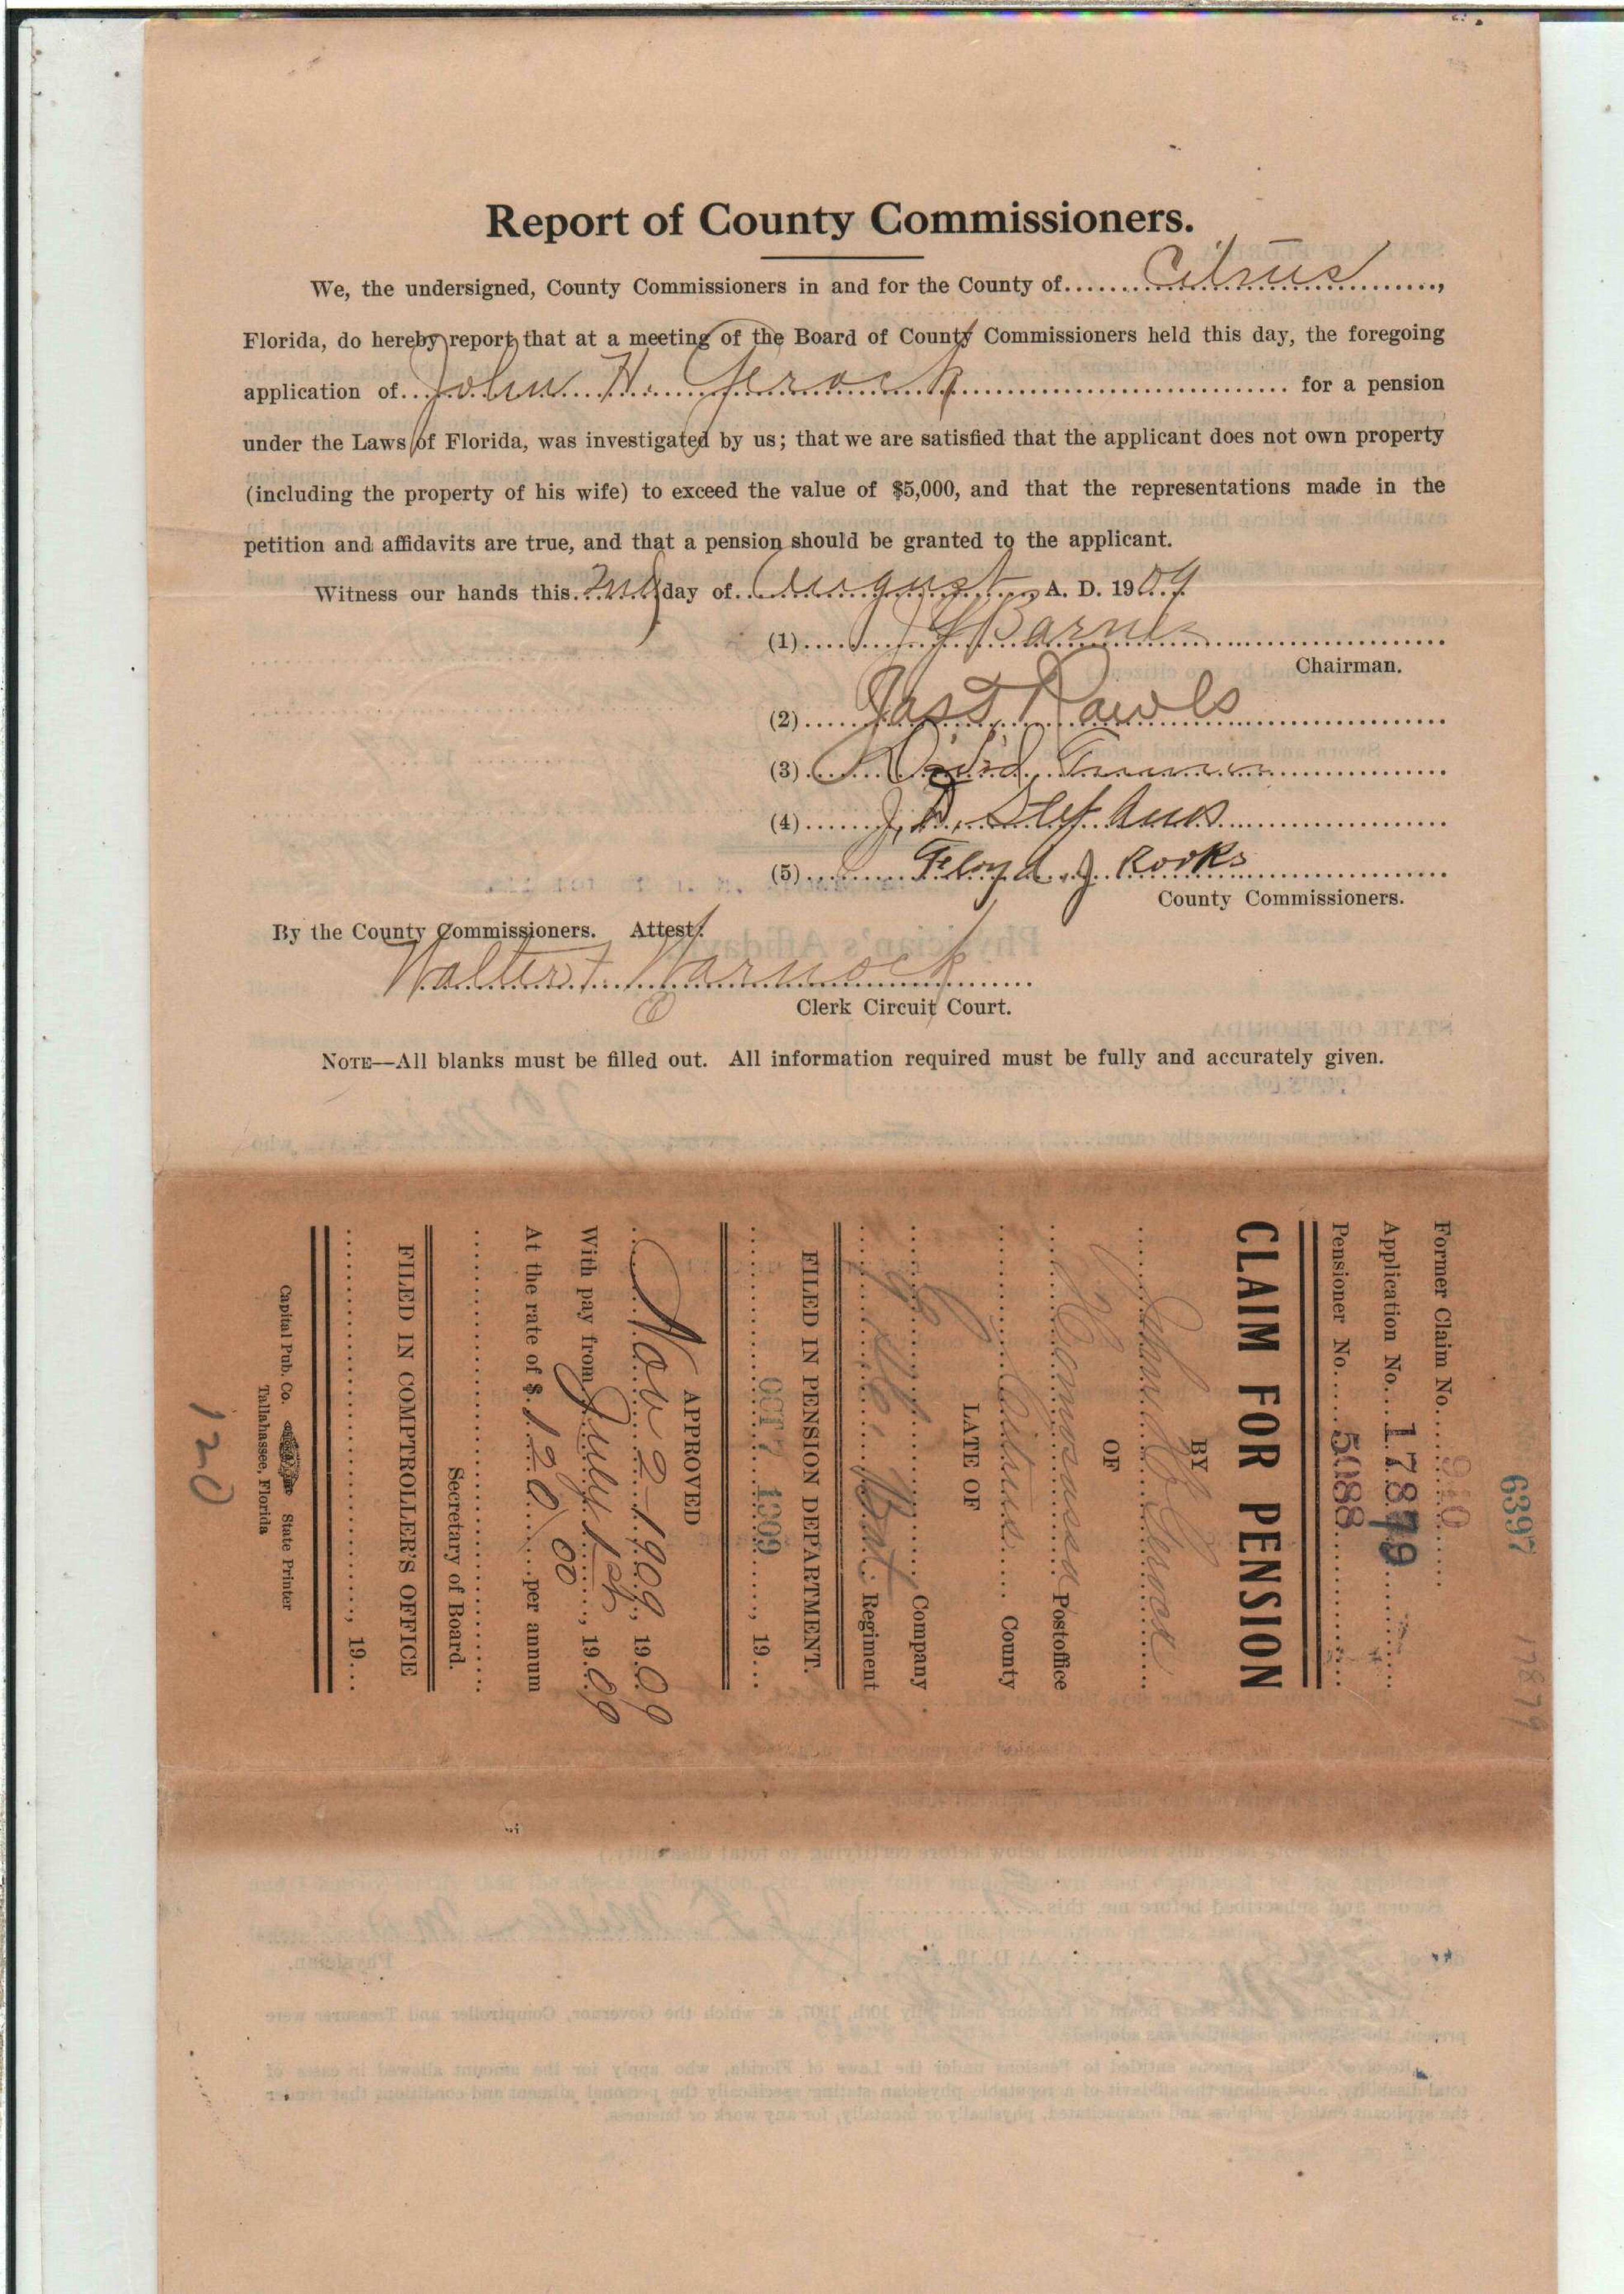 Report of County Commissioners.
We, the undersigned, County Commissioners in and for the County of Citrus,
Florida, do hereby report that at a meeting of the Board of County Commissioners held this day, the foregoing
application of John H. for a pension
under the Laws of Florida, was investigated by us; that we are satisfied that the applicant does not own property
(including the property of his wife) to exceed the value of $5,000, and that the representations made in the
petition and affidavits are true, and that a pension should be granted to the applicant.
Witness our hands this 2nd day of August A. D. 1909
(1) Barnes
Chairman.
(2) Jas T. Rawls
(3)
(4) J. D. Stephens
(5) Floyd J. Rooks
County Commissioners.
By the County Commissioners. Attest:
Walter F. Warnock
Clerk Circuit Court.
NOTE—All blanks must be filled out. All information required must be fully and accurately given.
6397
17879
Former Claim No. 940
Application No. 17879
Pensioner No. 5088
CLAIM FOR PENSION
BY
John H.
OF
Homosassa Postoffice
Citrus County
LATE OF
Company
Regiment
FILED IN PENSION DEPARTMENT.
OCT 7 1909, 19
APPROVED
Nov 2 - 1909, 1909
With pay from July 1st, 1909
At the rate of $ 120.00 per annum
Secretary of Board.
FILED IN COMPTROLLER'S OFFICE
, 19
Capital Pub. Co. State Printer
Tallahassee, Florida
120